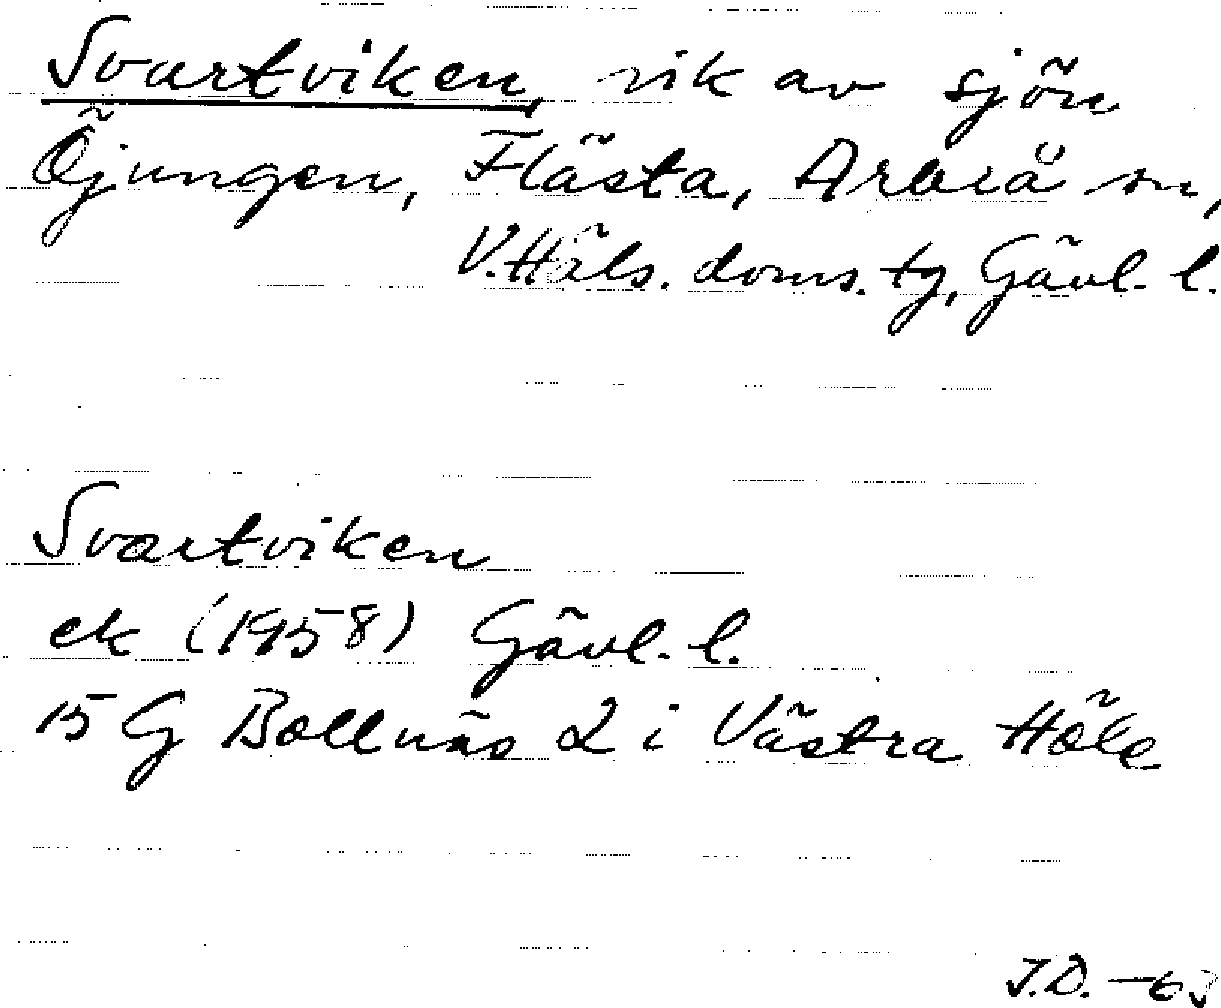 Svartviken, vik av sjön
Öjungen, Flästa, Arbrå sn,
V. Häls. doms. tg, Gävl. l.
Svartviken
ek (1958) Gävl. l.
15 G Bollnäs 2 i Västra
J.D. -63